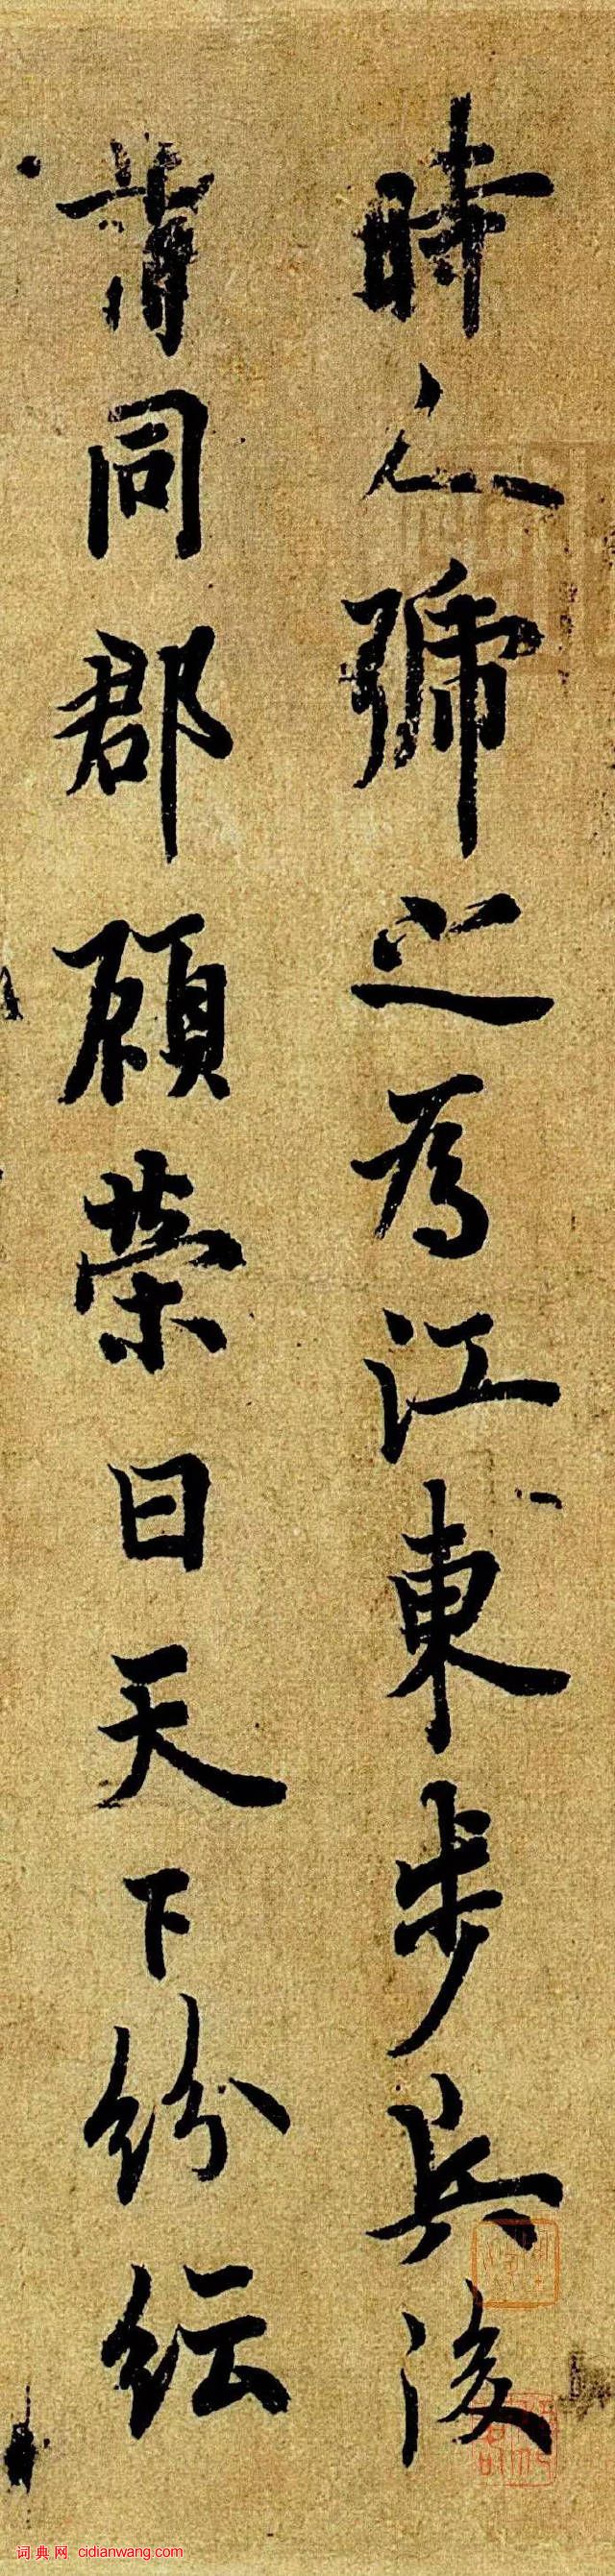 時人號之為江東步兵後
謂同郡顧榮曰天下紛紜
词典网 cidianwang.com